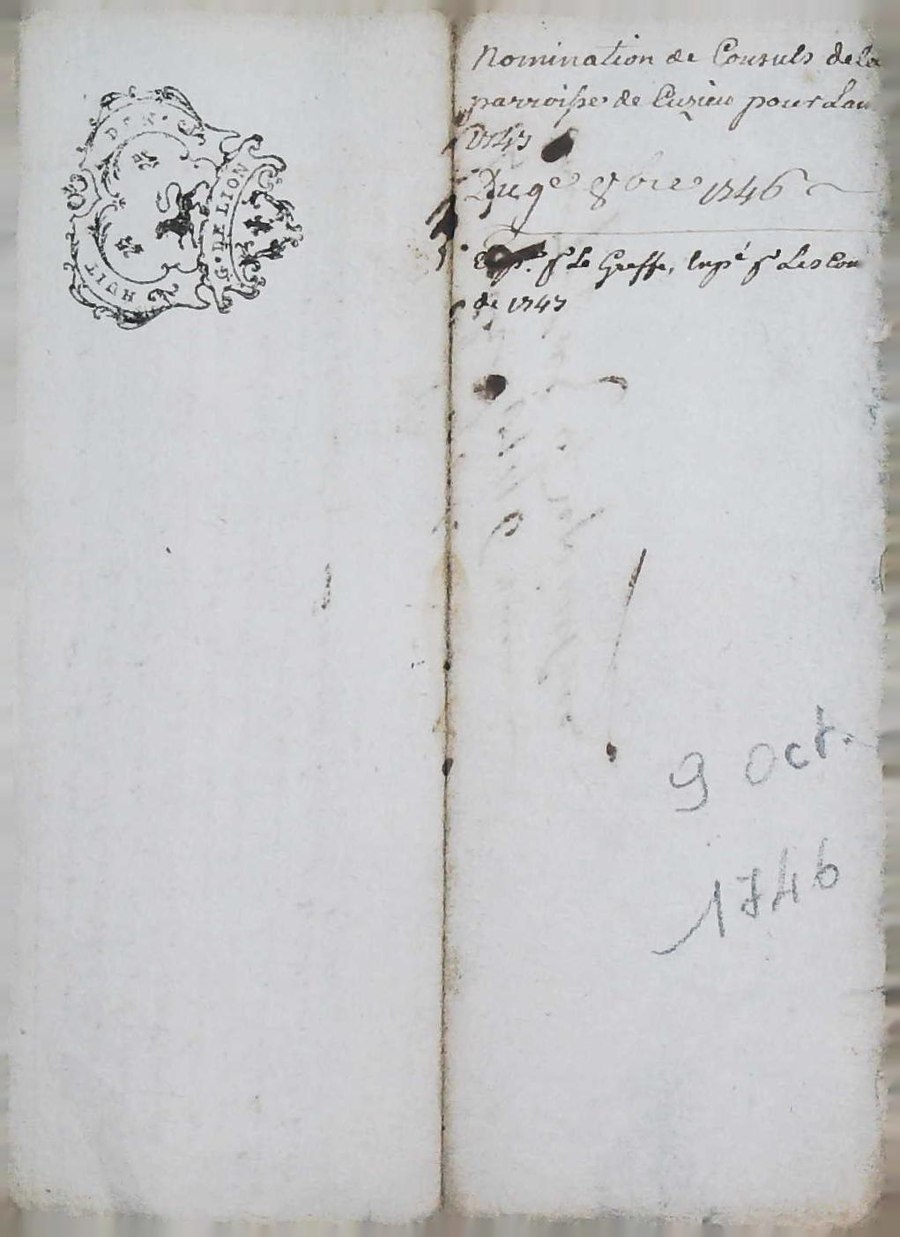 HUIT DEN. G. DE LION
Nomination de Consuls de la
parroisse de Cuzieu pour Lan
1747
Du 9e 8bre 1746
Exp. pr Le Greffe, Expé pr Les Con
de 1747
9 Oct.
1746